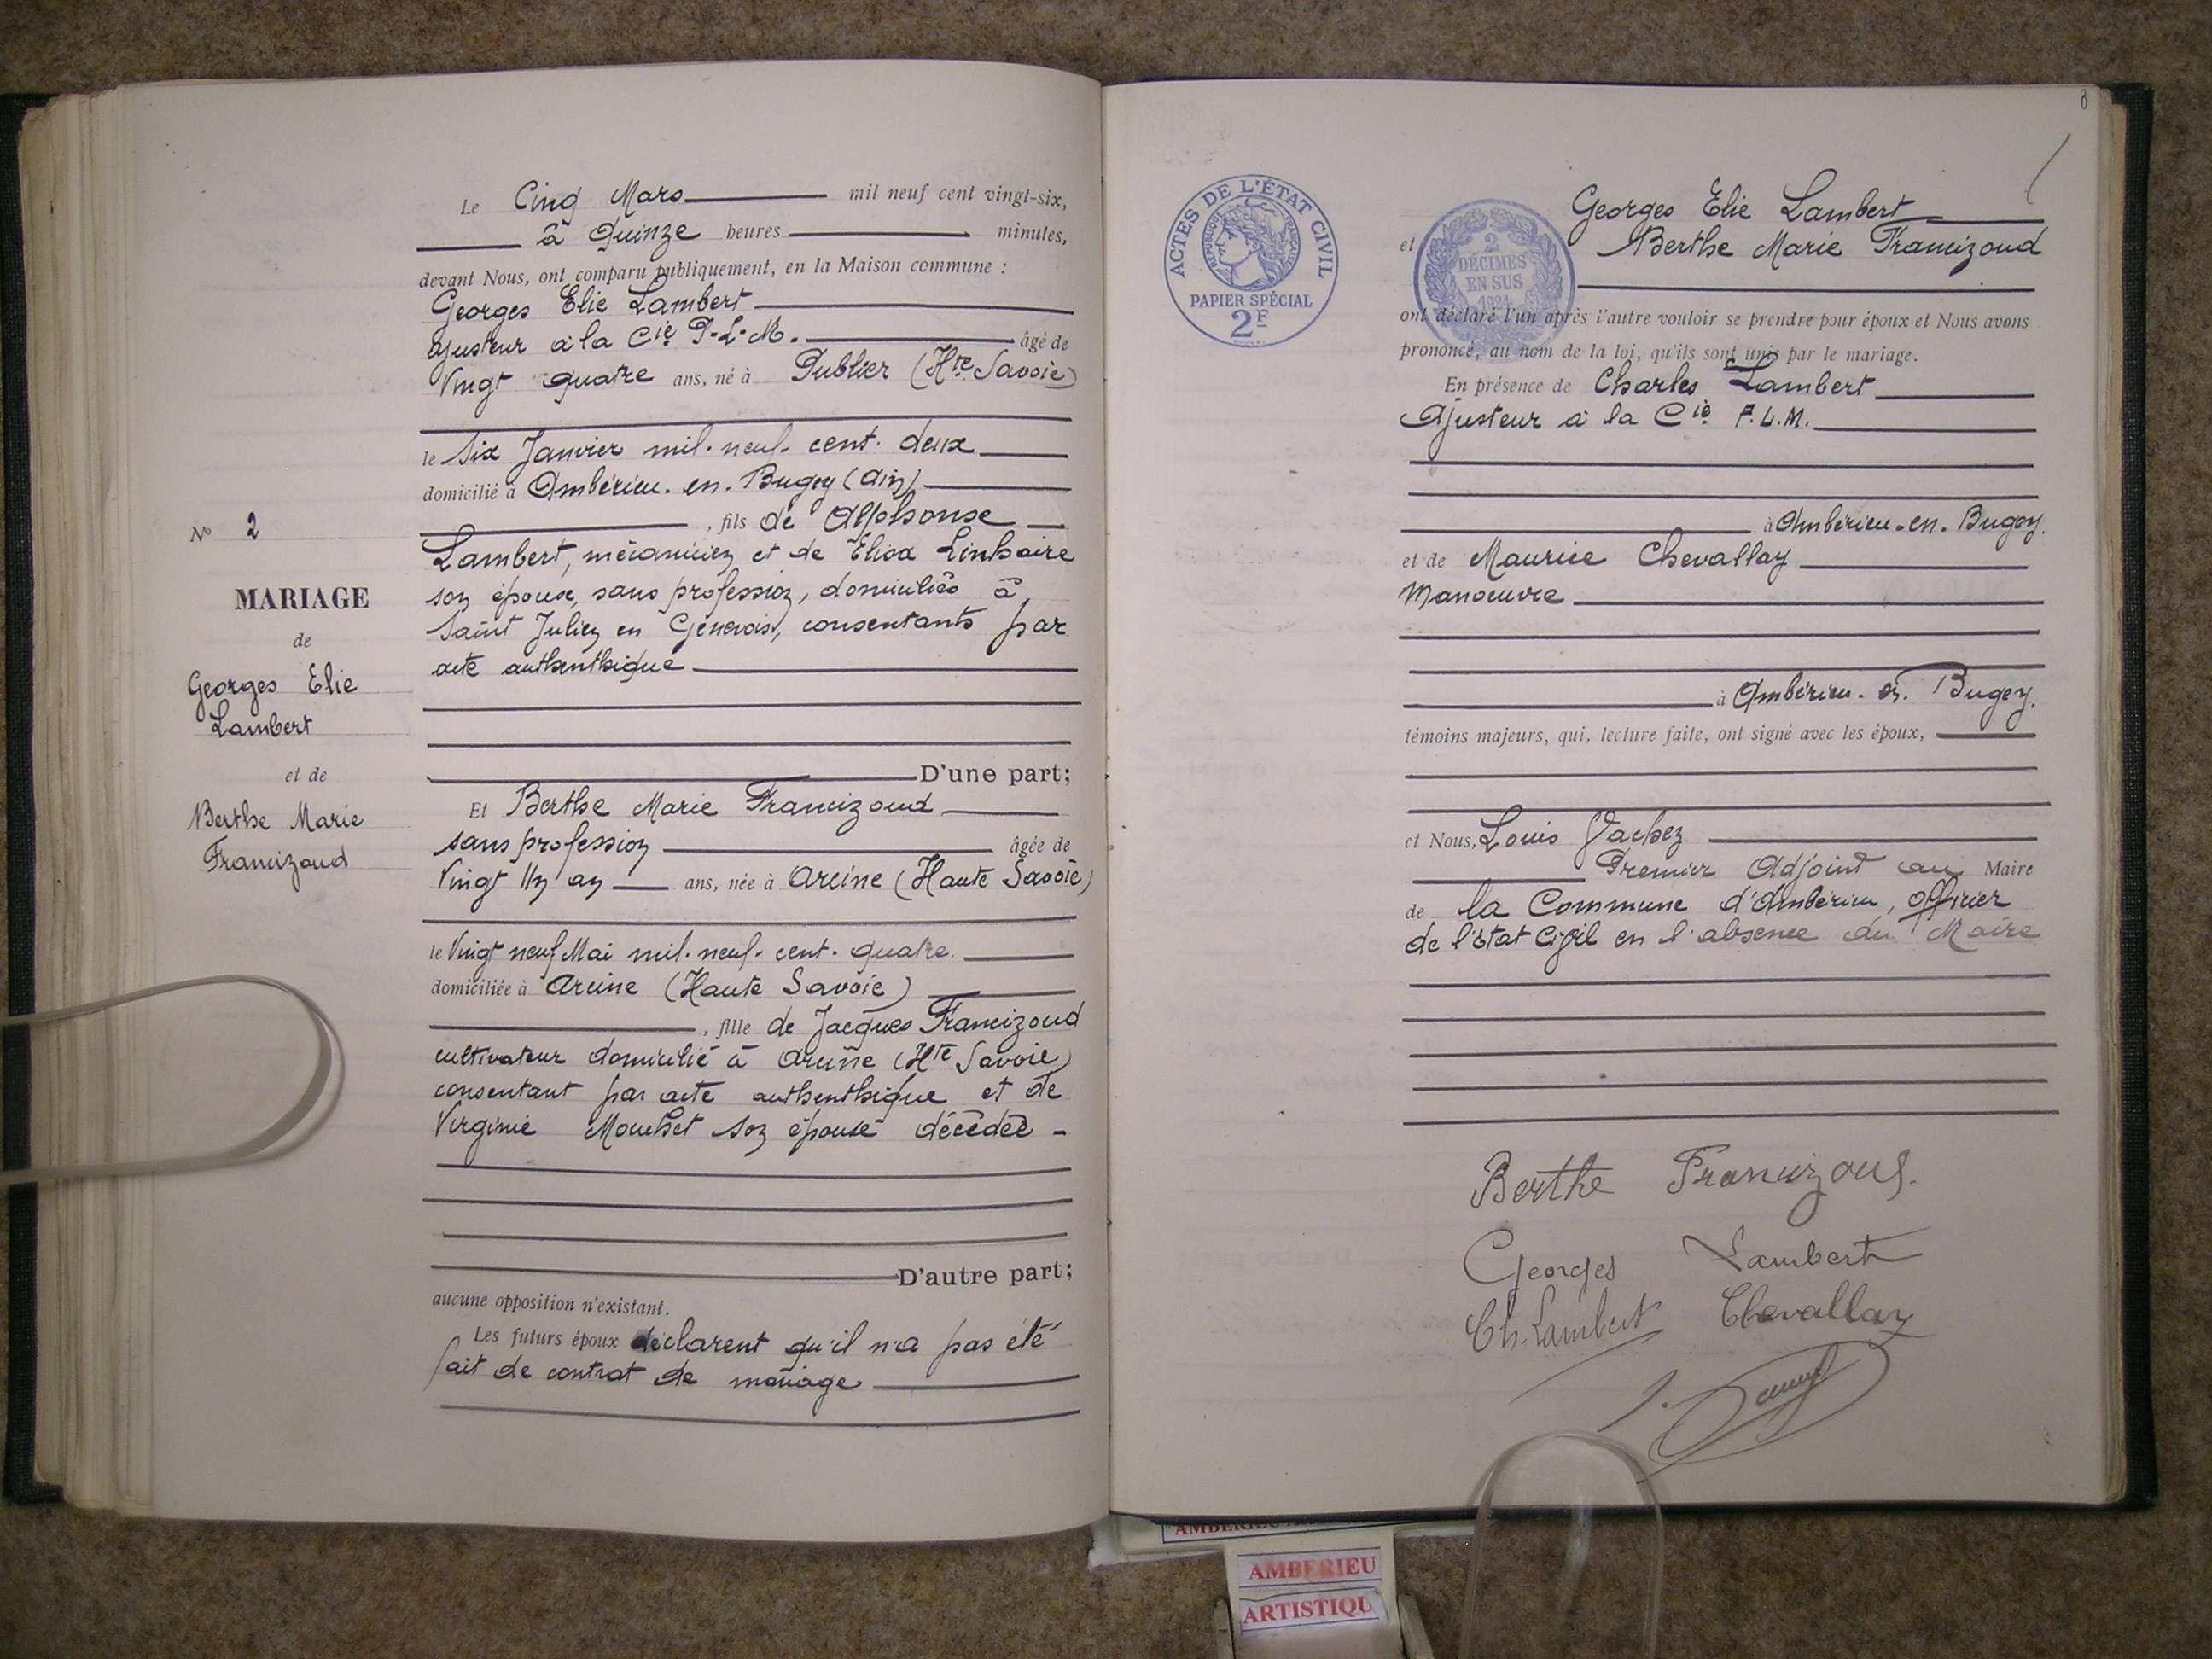 Le Cinq Mars mil neuf cent vingt-six,
à Quinze heures minutes,
devant Nous, ont comparu publiquement, en la Maison commune :
Georges Elie Lambert
ajusteur à la Cie P-L-M. âgé de
Vingt quatre ans, né à Publier (Hte Savoie)
le Six Janvier mil-neuf-cent-deux
domicilié à Ambérieu-en-Bugey (Ain)
, fils de Alphonse
Lambert, mécanicien et de Elisa
son épouse, sans profession, domiciliés à
Saint Julien en Genevois, consentants par
acte authenthique
D'une part;
Et Berthe Marie Francizoud
sans profession âgée de
Vingt Un an ans, née à Arcine (Haute Savoie)
le Vingt neuf Mai mil-neuf-cent-quatre
domiciliée à Arcine (Haute Savoie)
, fille de Jacques Francizoud
cultivateur domicilié à Arcine (Hte Savoie)
consentant par acte authenthique et de
Virginie Mouchet son épouse décédée -
D'autre part;
aucune opposition n'existant.
Les futurs époux déclarent qu'il n'a pas été
fait de contrat de mariage
No 2
MARIAGE
de
Georges Elie
Lambert
et de
Berthe Marie
Francizoud
8
ACTES DE L'ÉTAT CIVIL
RÉPUBLIQUE FRANÇAISE
PAPIER SPÉCIAL
2F
2
DÉCIMES
EN SUS
1921
Georges Elie Lambert
et Berthe Marie Francizoud
ont déclaré l'un après l'autre vouloir se prendre pour époux et Nous avons
prononcé, au nom de la loi, qu'ils sont unis par le mariage.
En présence de Charles Lambert
Ajusteur à la Cie P.L.M.
à Ambérieu-en-Bugey.
et de Maurice Chevallay
Manoeuvre
à Ambérieu-en-Bugey.
témoins majeurs, qui, lecture faite, ont signé avec les époux,
et Nous, Louis Vachez
Premier Adjoint au Maire
de la Commune d'Ambérieu, officier
de l'Etat Civil en l'absence du Maire
Berthe Francizoud.
Georges Lambert
Ch. Lambert Chevallay
AMBERIEU
ARTISTIQU